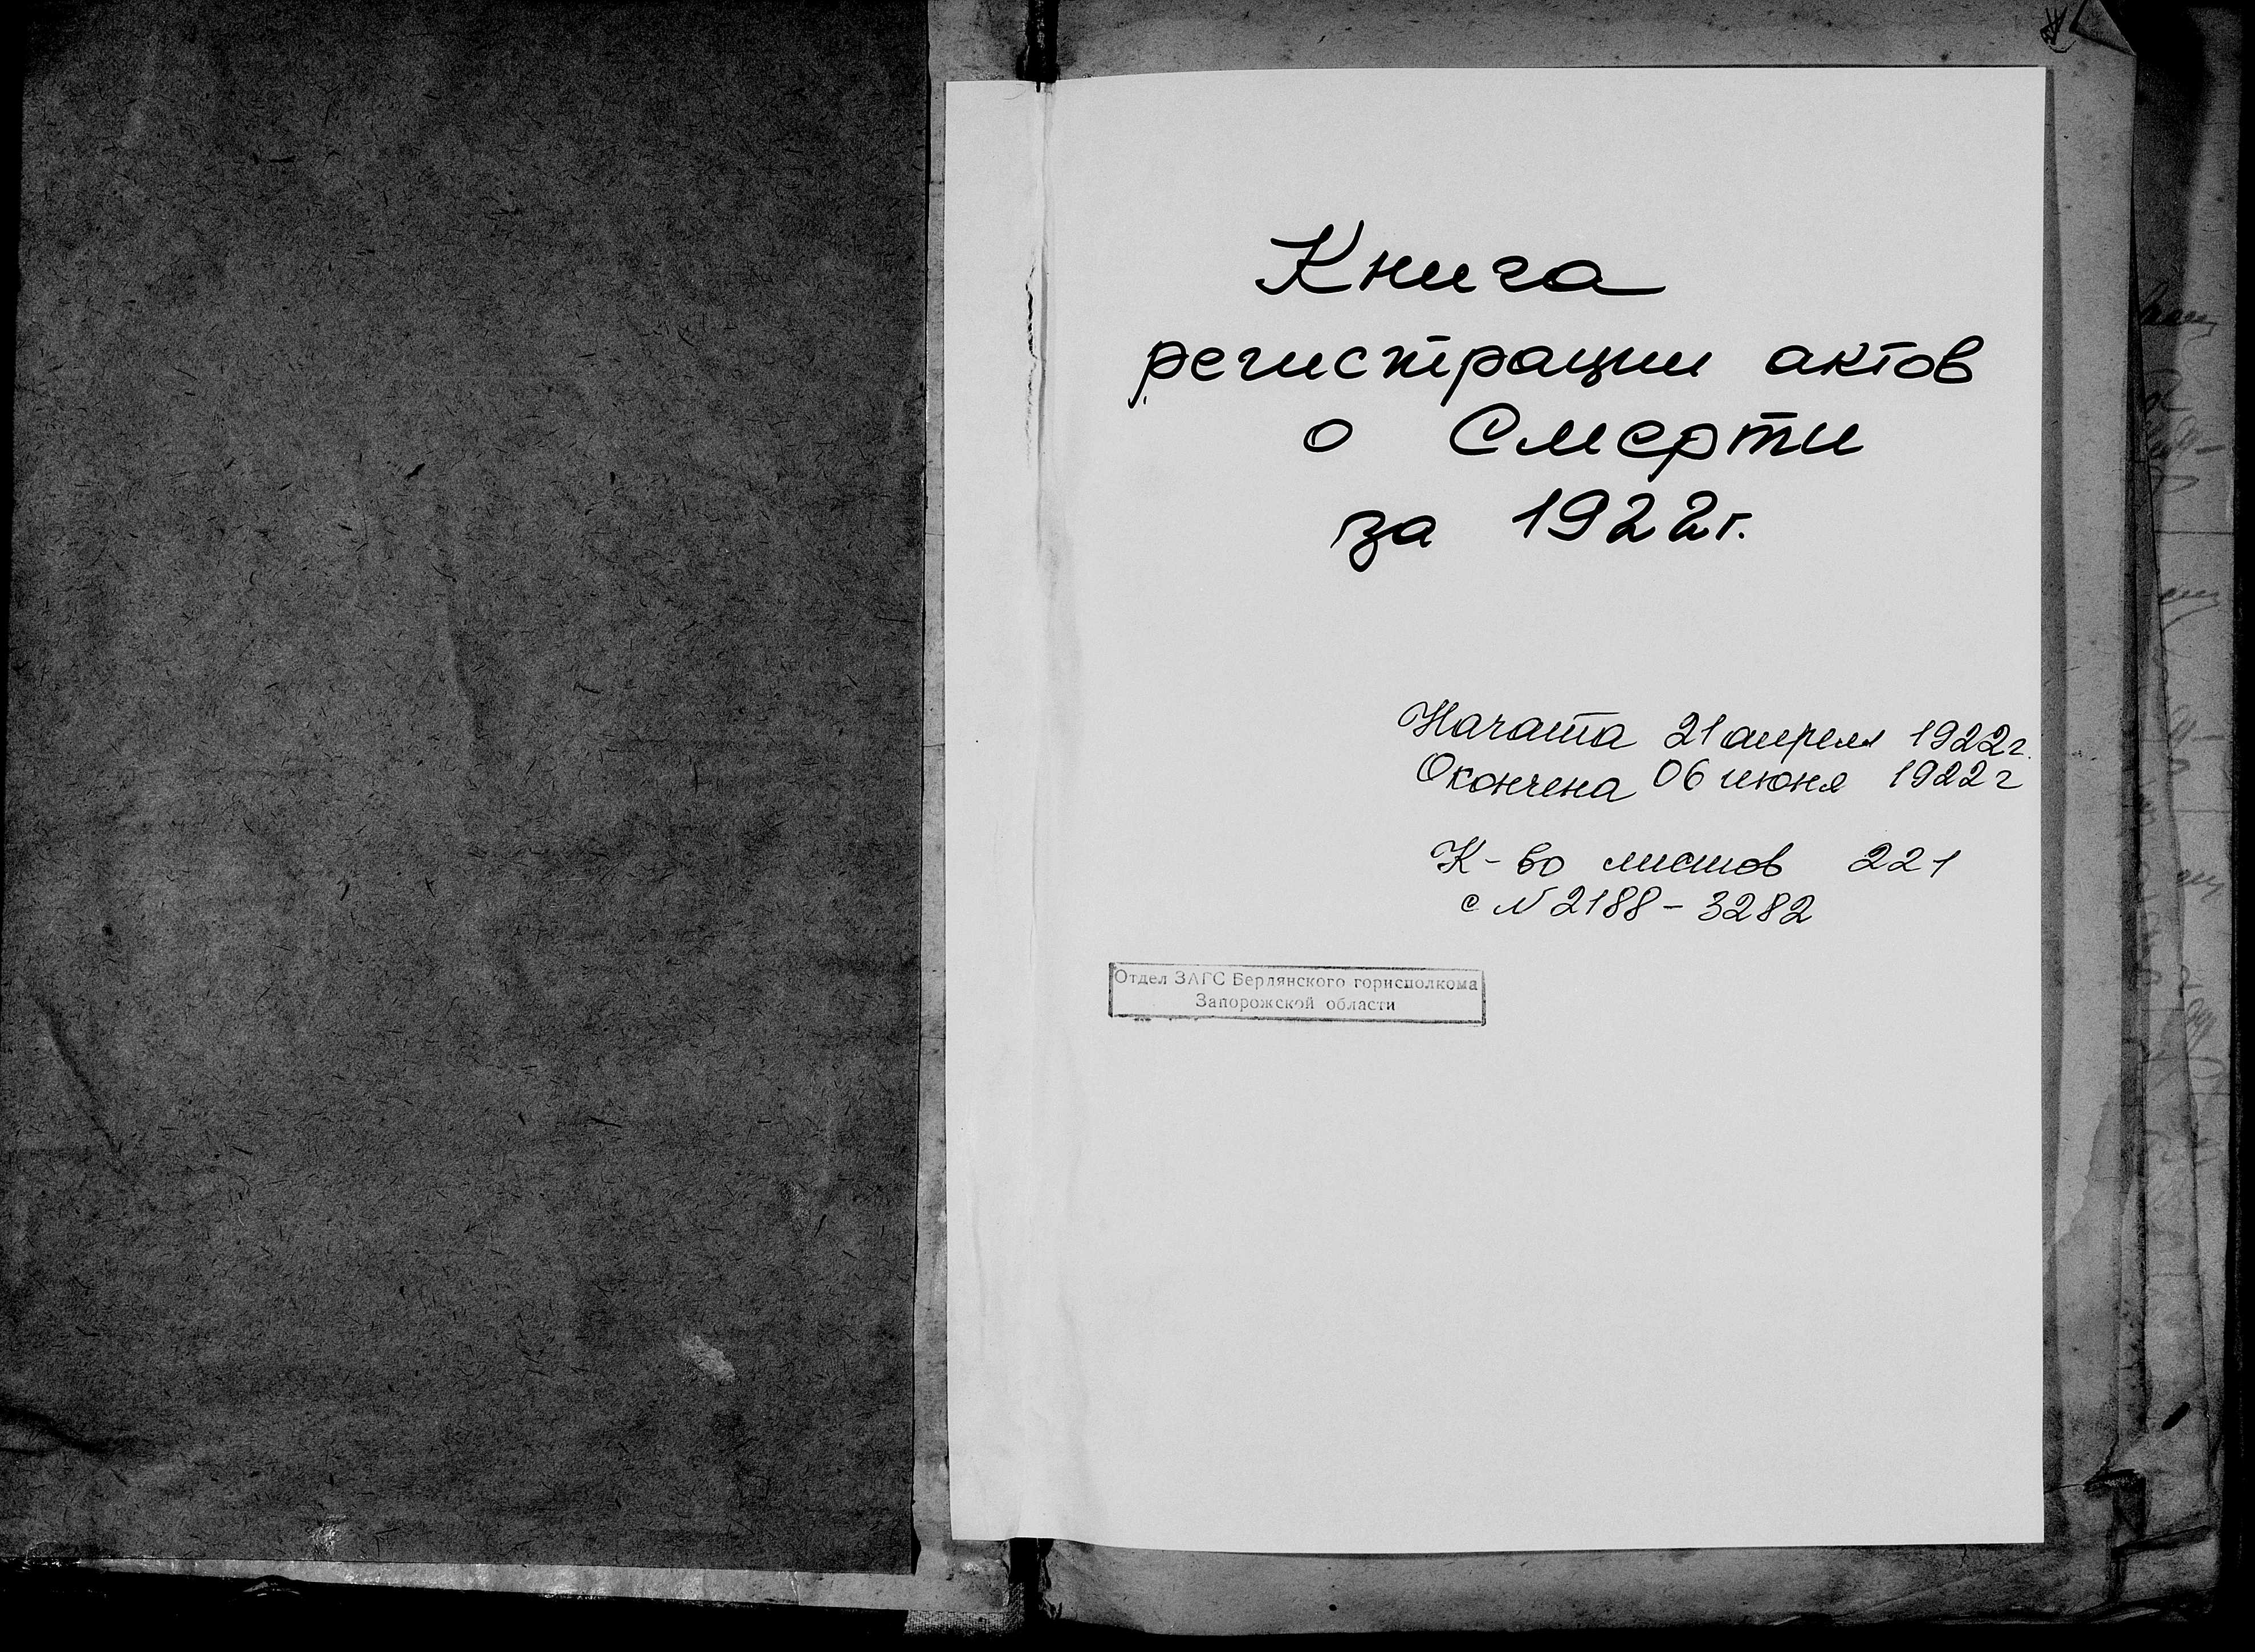 Книга
регистрации актов
о Смерти
за 1922г.
Начата 21 апреля 1922г.
Окончена 06 июня 1922г
К-во листов 221
с N 2188-3282
Отдел ЗАГС Бердянского горисполкома
Запорожской области